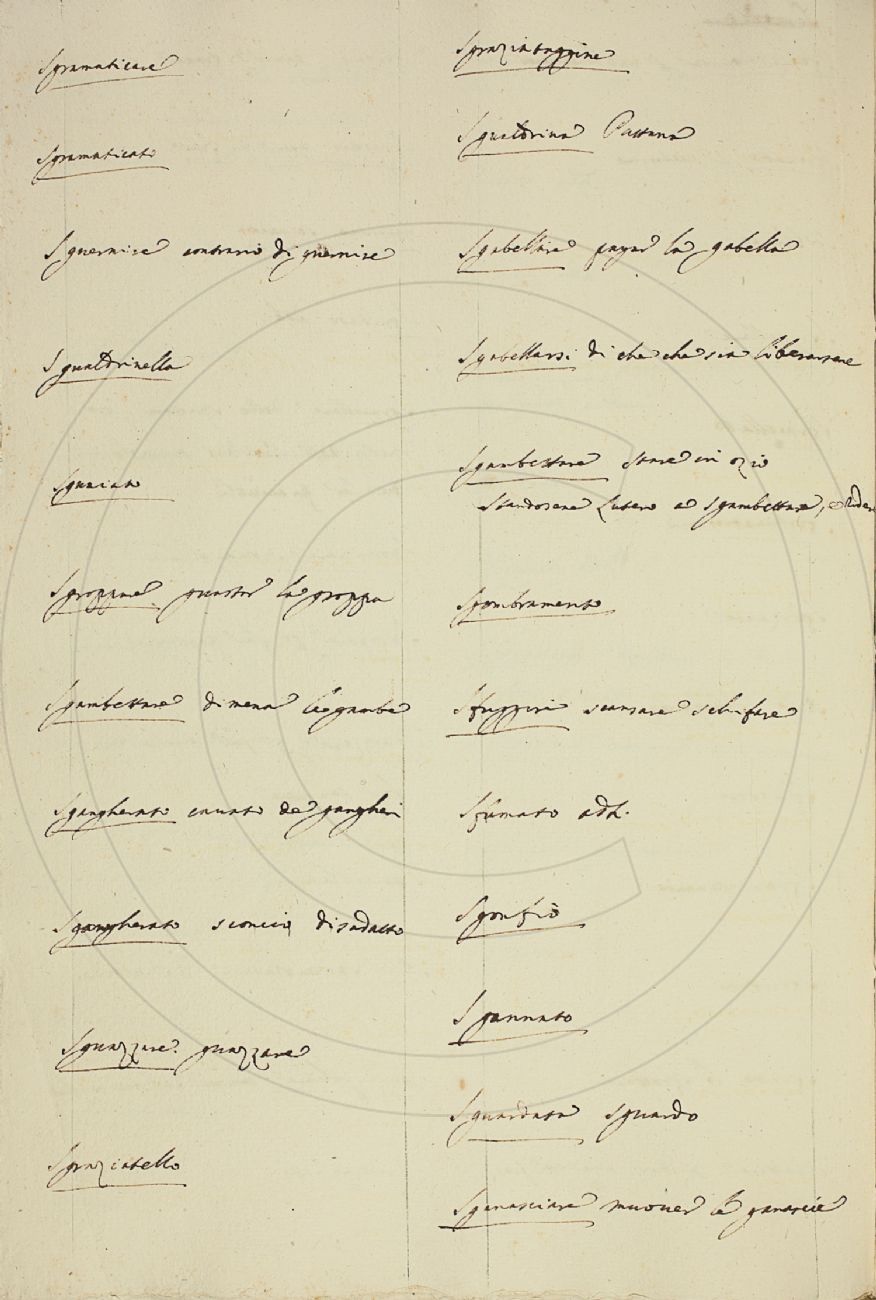 Sgramaticare
Sgramaticato
Sguernire contrario di guernire
Sgualdrinella
Sguaiato
Sgroppare guastar la groppa
Sgambettare dimenar le gambe
Sgangherato cavato de gangheri
Sgangherato sconcio disadatto
Sguazzare. guazzare
Sgraziatello
Sgraziataggine
Sgualdrina Puttana
Sgabellare pagar la gabella
Sgabellarsi di che che sia liberarsene
Sgambettare stare in ozio
standosene a sgambettare, e
Sgombramento
Sfuggire scansare schifare
Sfumato
Sgonfio
Sgannato
Sguardata sguardo
Sganasciare muover le ganascie